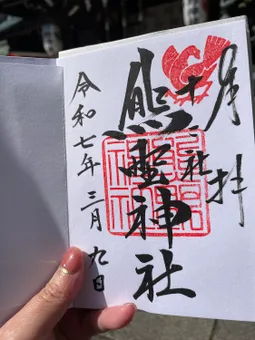 奉拝
十二社
熊野神社
令和七年三月九日